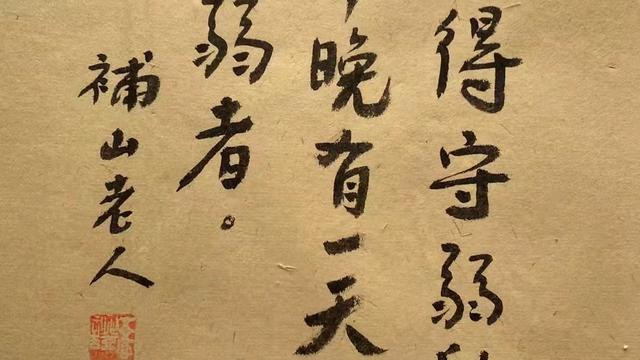 得守弱
晚有一天
弱者。
補山老人